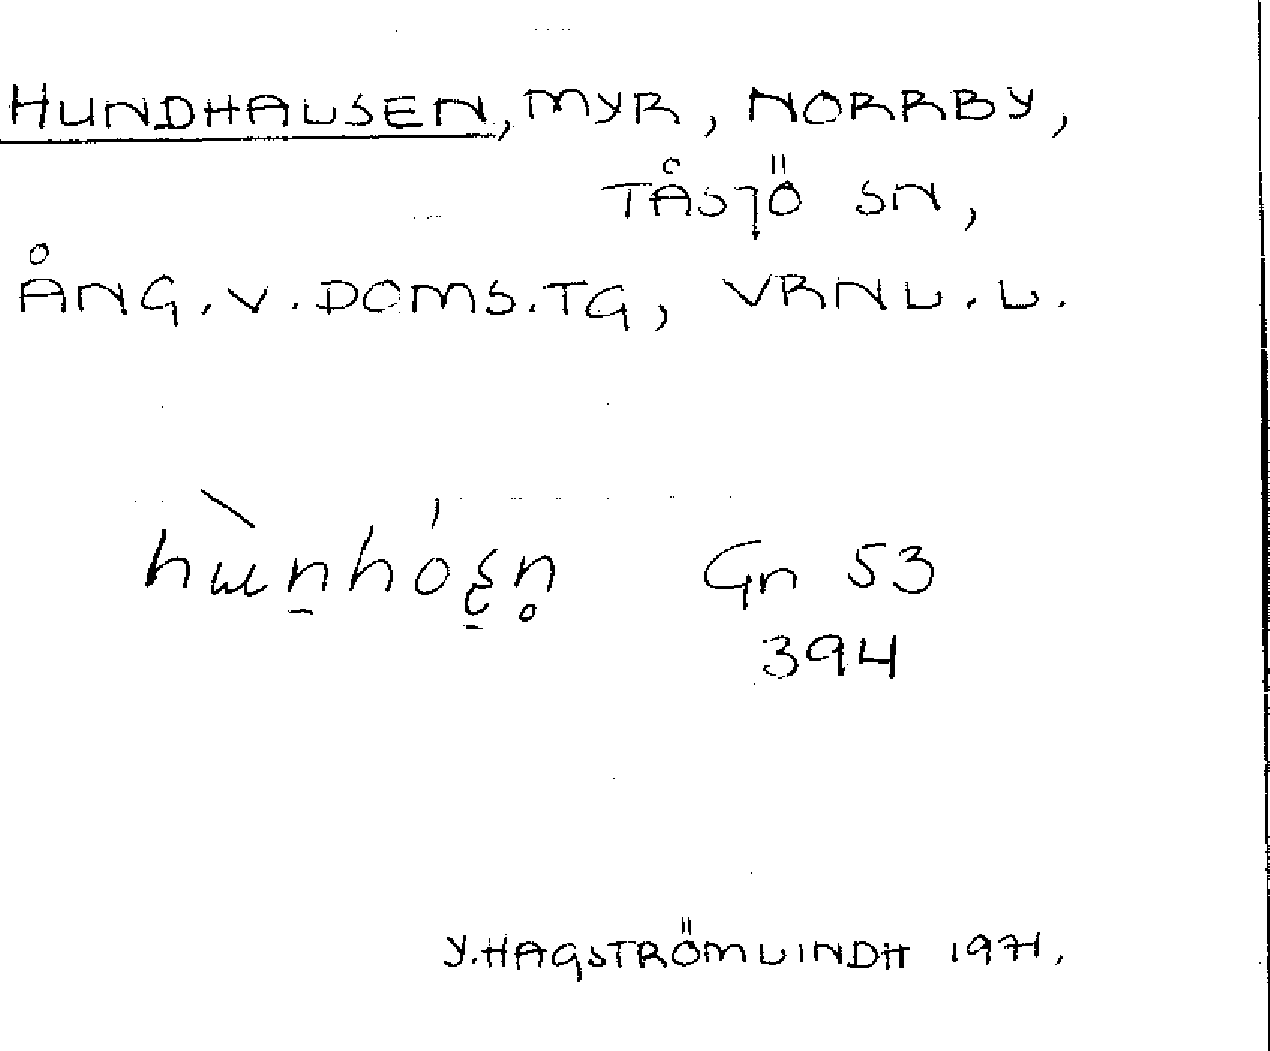 HUNDHAUSEN, MYR, NORRBY,
TÅSJÖ SN,
ÅNG. V. DOMS. TG, VRNL. L.
hùn̠hósn̥ Gn 53
394
Y. HAGSTRÖM LINDH 1971.